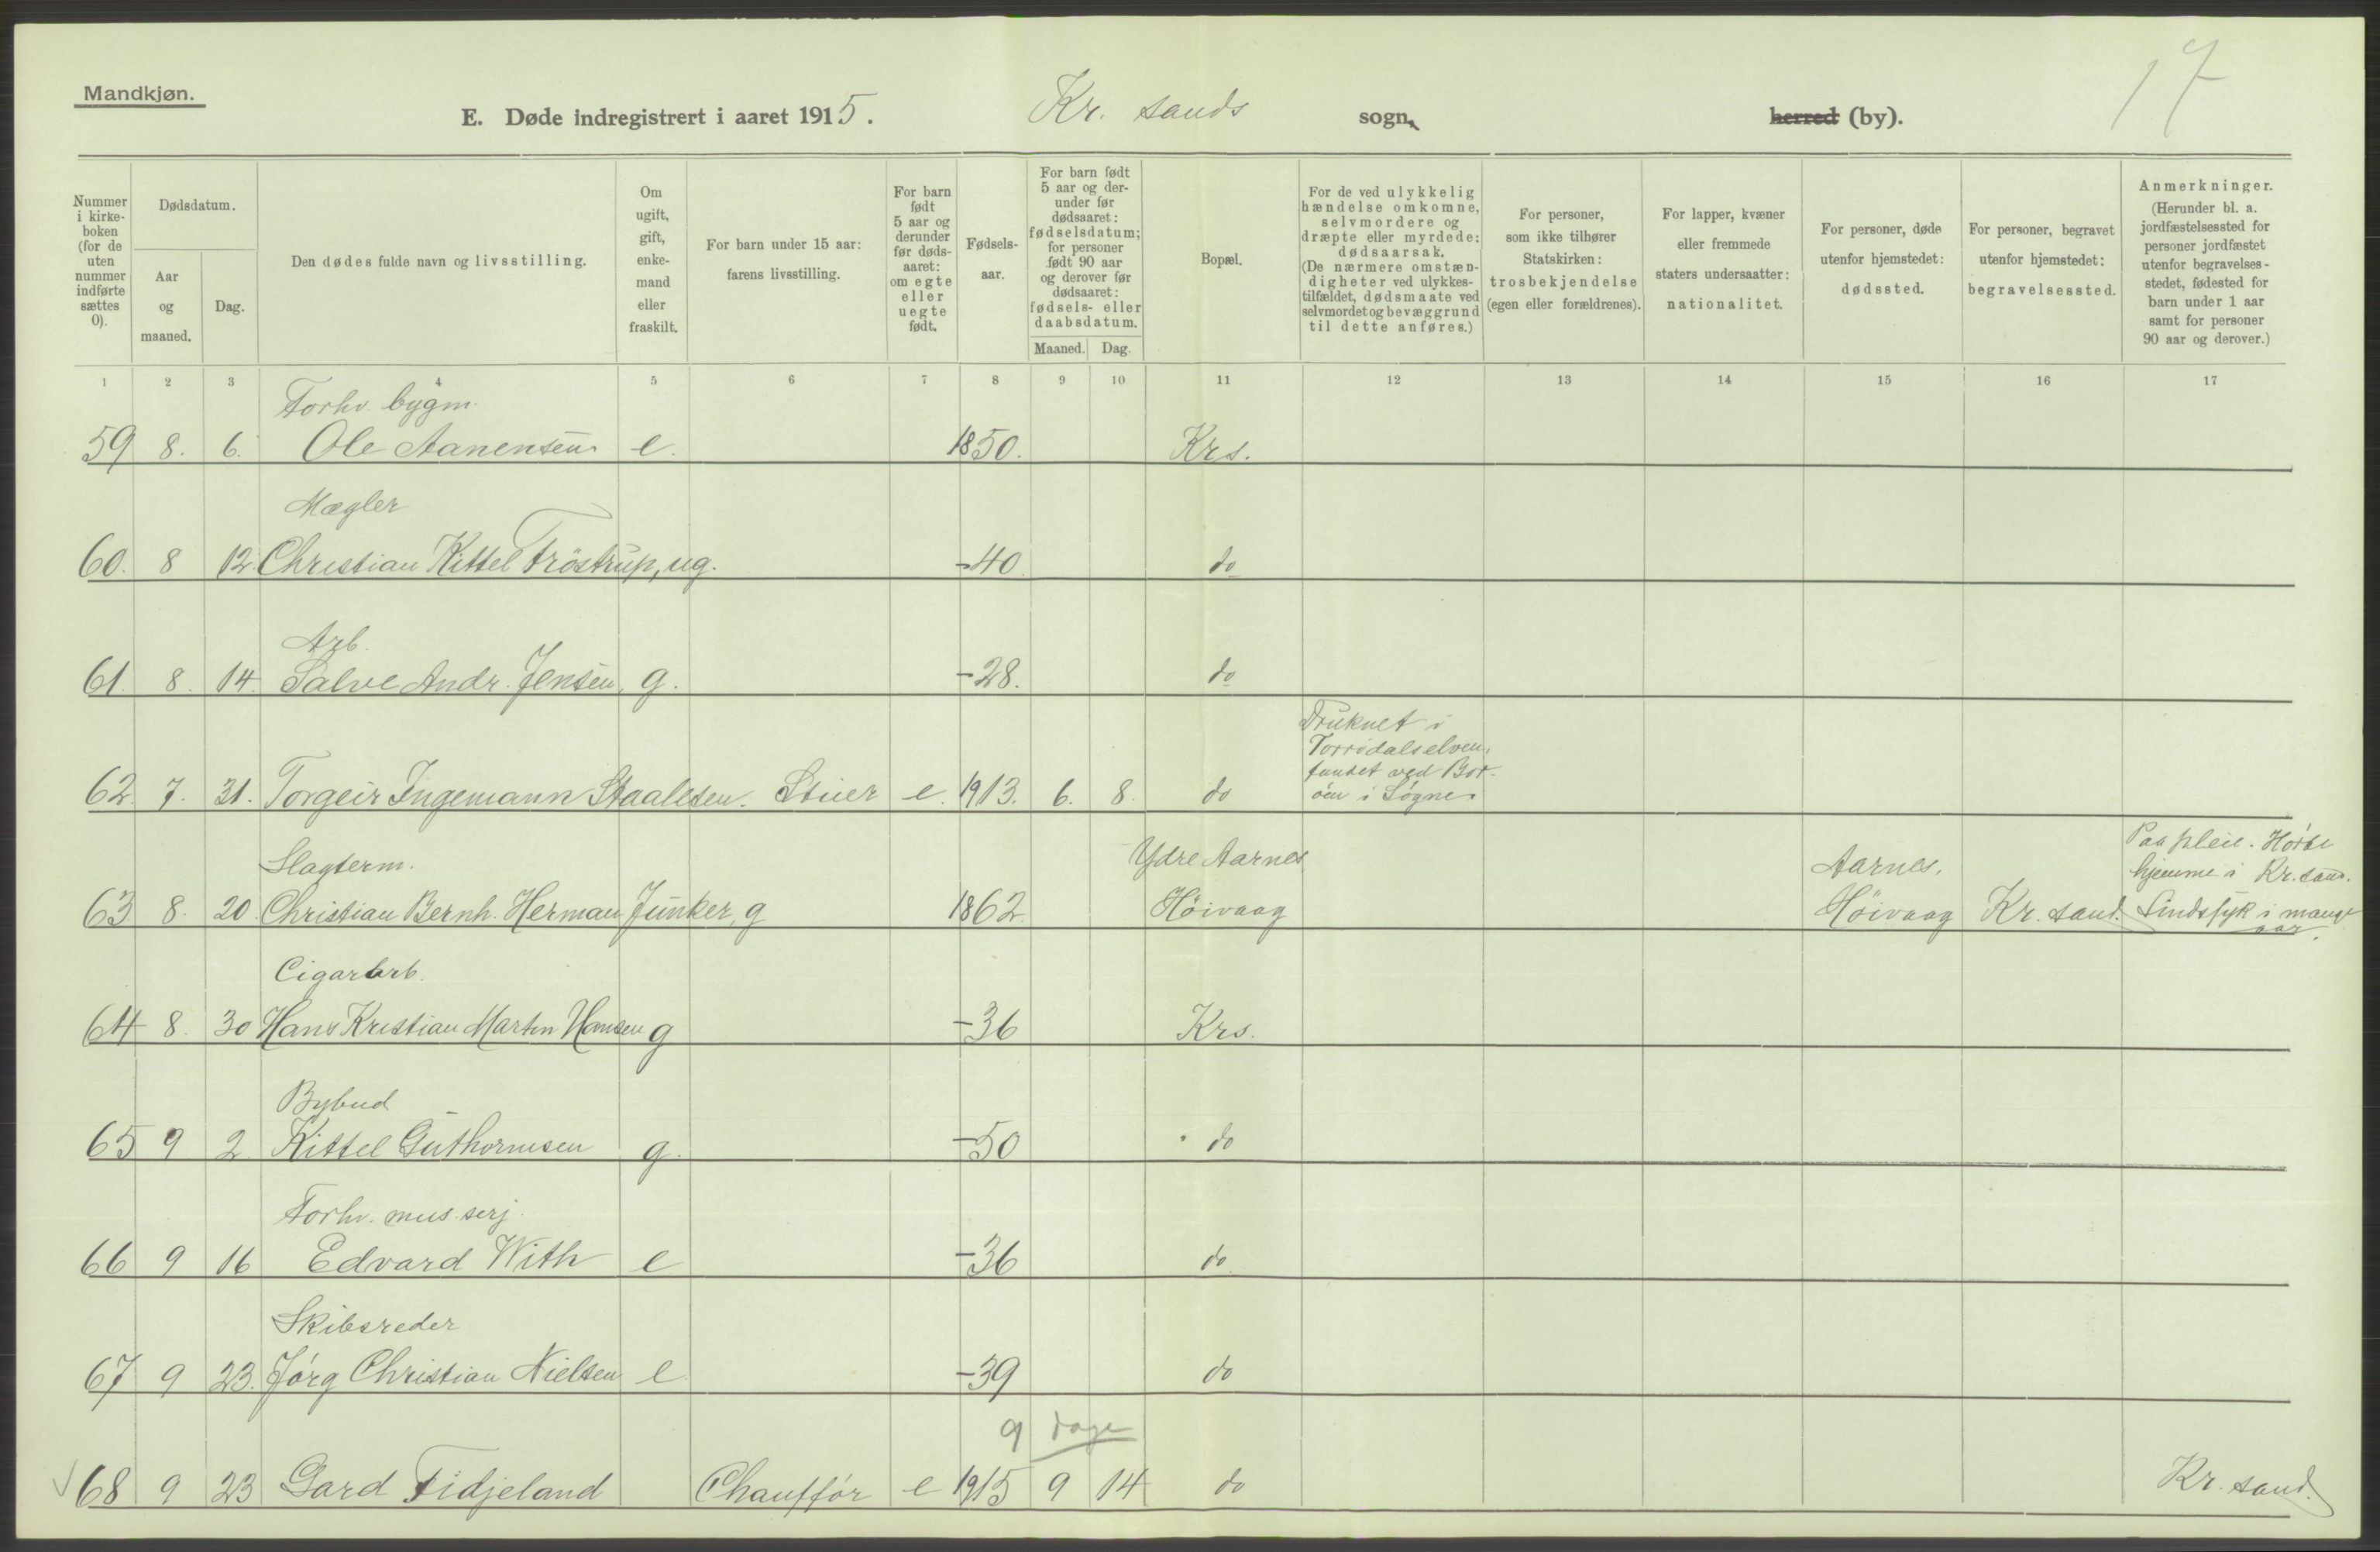 Mandkjøn.
17
E. Døde indregistrert i aaret 1915. Kr. sands sogn, herred (by).
Nummer i kirke-boken (for de uten nummer indførte sættes 0).
Dødsdatum.
Aar og maaned.
Dag.
Den dødes fulde navn og livsstilling.
Om ugift, gift, enke-mand eller fraskilt.
For barn under 15 aar: farens livsstilling.
For barn født 5 aar og derunder før døds-aaret: om egte eller uegte født.
Fødsels-aar.
For barn født 5 aar og der-under før dødsaaret: fødselsdatum; for personer født 90 aar og derover før dødsaaret: fødsels- eller daabsdatum.
Maaned.
Dag.
Bopæl.
For de ved ulykkelig hændelse omkomne, selvmordere og dræpte eller myrdede: dødsaarsak. (De nærmere omstæn-digheter ved ulykkes-tilfældet, dødsmaate ved selvmordet og bevæggrund til dette anføres.)
For personer, som ikke tilhører Statskirken: trosbekjendelse (egen eller forældrenes).
For lapper, kvæner eller fremmede staters undersaatter: nationalitet.
For personer, døde utenfor hjemstedet: dødssted.
For personer, begravet utenfor hjemstedet: begravelsessted.
Anmerkninger. (Herunder bl. a. jordfæstelsessted for personer jordfæstet utenfor begravelses-stedet, fødested for barn under 1 aar samt for personer 90 aar og derover.)
1 2 3 4 5 6 7 8 9 10 11 12 13 14 15 16 17
Forhv. bygm.
59 8. 6. Ole Aanensen e. 1850. Krs.
Mægler
60. 8 12. Christian Kittel Tröstrup, ug. -40 do
Arb.
61. 8. 14. Salve Andr. Jensen, g. -28. do
Druknet i
Torridalselven,
fundet ved Bor-
62. 7. 31. Torgeir Ingemann Staalesen. Stuer e. 1913. 6. 8. do öen i Søgne.
Slagterm. Ydre Aarnes Aarnes, Paa pleie. Hørte
hjemme i Kr. sand.
63 8. 20. Christian Bernh. Herman Junker, g 1862. Höivaag Höivaag Kr. sand. Sindssyk i mange
aar.
Cigararb.
64 8. 30 Hans Kristian Martin Hansen g -36 Krs.
Bybud
65 9 2 Kittel Guthormsen g. -50 do
Forhv. mus. serj.
66 9 16 Edvard With e -36 do
Skibsreder
67 9 23. Jörg Christian Nielsen e. -39 do
9 dage
68 9 23 Gard Fidjeland Chaufför e 1915 9 14 do Kr. sand.